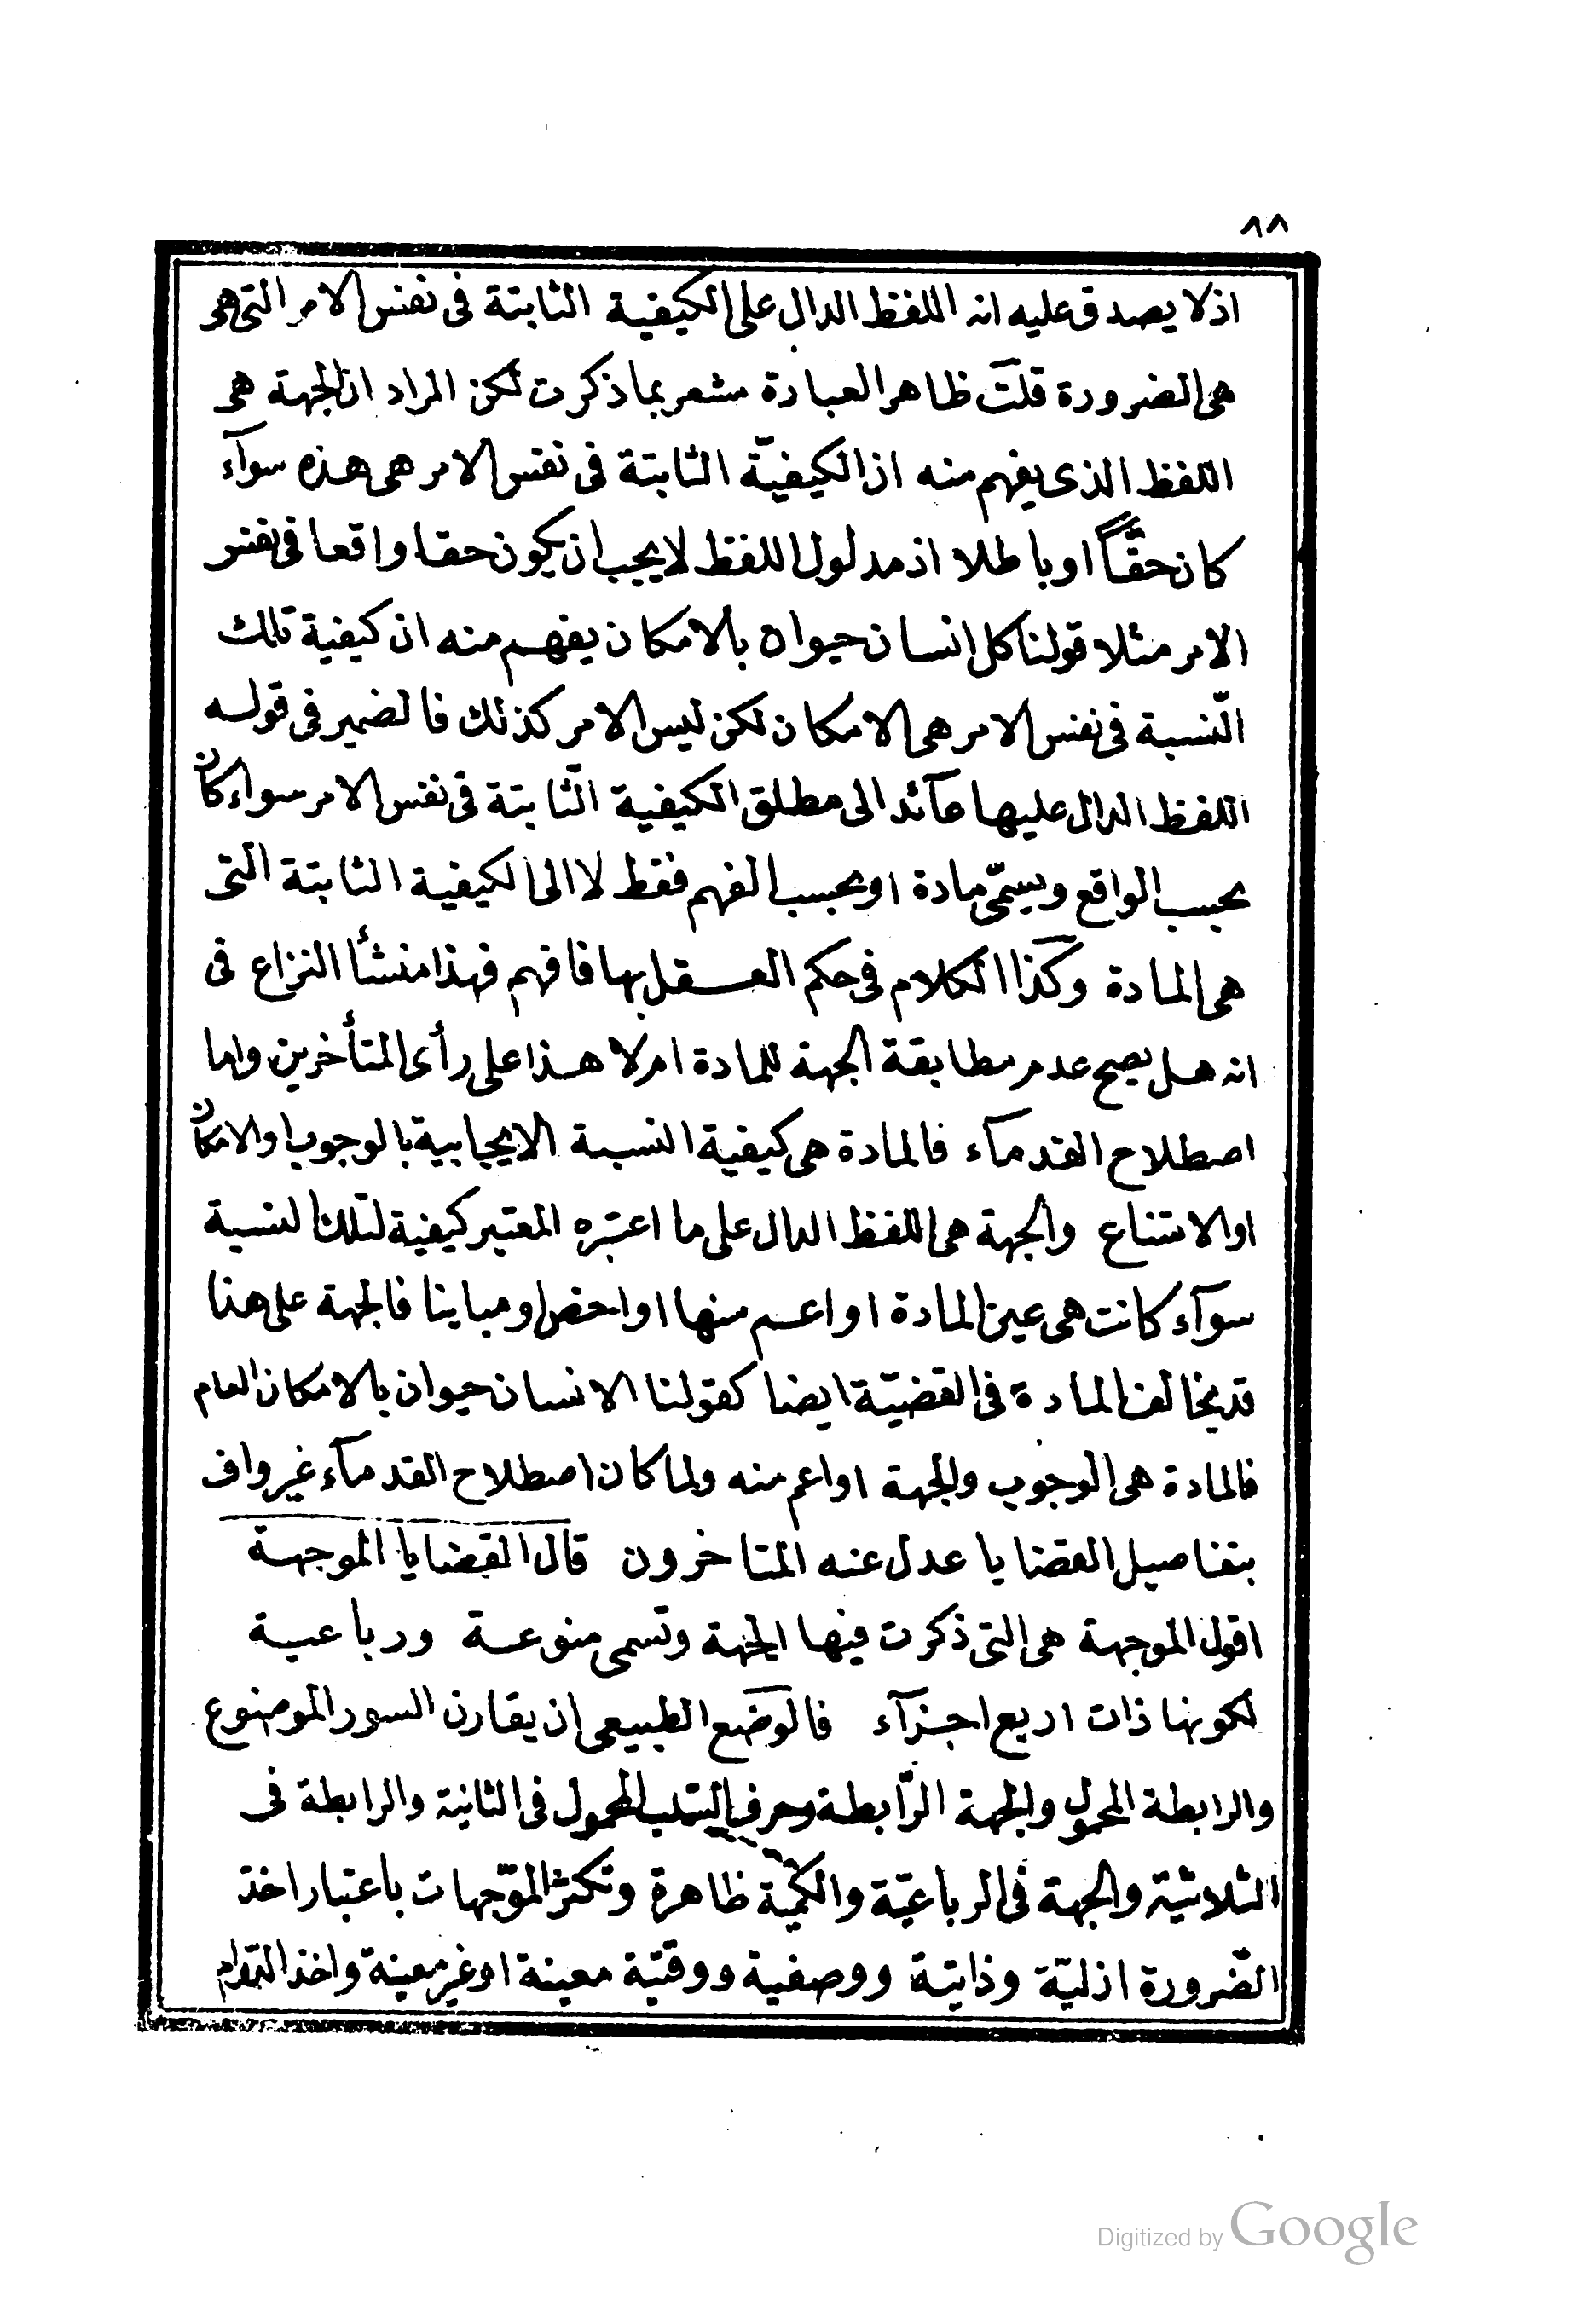 ٨٨
اذ لا يصدق عليه انه اللفظ الدال على الكيفية الثابتة فى نفس الامر التى هى
هى الضرورة قلت ظاهر العبارة مشعر بما ذكرت لكن المراد ان الجهة هى
اللفظ الذى يفهم منه ان الكيفيّة الثابتة فى نفس الامر هى هذه سوآء
كان حقّاً او باطلا اذ مدلول اللفظ لا يجب ان يكون حقا واقعا فى نفس
الامر مثلا قولنا كل انسان حيوان بالامكان يفهم منه ان كيفية تلك
النّسبة فى نفس الامر هى الامكان لكن ليس الامر كذلك فالضمير فى قوله
اللفظ الدال عليها عآئد الى مطلق الكيفية الثّابتة فى نفس الامر سواء كان
بحسب الواقع ويسمّى مادة او بحسب الفهم فقط لا الى الكيفية الثابتة التى
هى المادة وكذا الكلام فى حكم العقل بها فافهم فهذا منشأ النزاع فى
انه هل يصح عدم مطابقة الجهة للمادة ام لا هذا على رأى المتأخرين واما
اصطلاح القدمآء فالمادة هى كيفية النسبة الايجابية بالوجوب او الامكان
او الامتناع والجهة هى اللفظ الدال على ما اعتبره المعتبر كيفية لتلك النسبة
سوآء كانت هى عين المادة او اعم منها او اخص او مباينا فالجهة على هذا
قد يخالف المادة فى القضيّة ايضا كقولنا الانسان حيوان بالامكان العام
فالمادة هى الوجوب والجهة او اعم منه ولما كان اصطلاح القدمآء غير واف
بتفاصيل القضايا عدل عنه المتاخرون قال القضايا الموجهة
اقول الموجهة هى التى ذكرت فيها الجهة وتسمى منوعة ورباعية
لكونها ذات اربع اجزآء فالوضع الطبيعى ان يقارن السور الموضوع
والرابطة المحمول والجهة الرّابطة وحرف السّلب المحمول فى الثانية والرابطة فى
الثلاثية والجهة فى الرباعيّة والكميّة ظاهرة وتكثّر الموّجهات باعتبار اخذ
الضّرورة ازليّة وذاتيّة ووصفية ووقتيّة معينة او غير معينة واخذ الدّوام
Digitized by Google